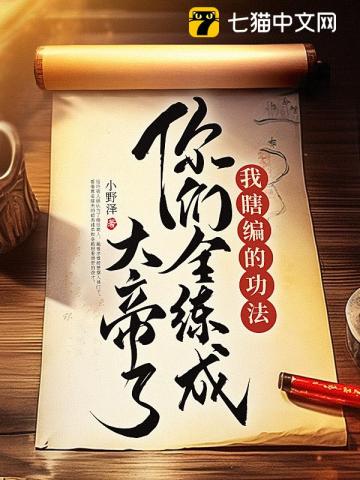 七猫中文网
我瞎编的功法
你们全练成
大帝了
小野泽 著